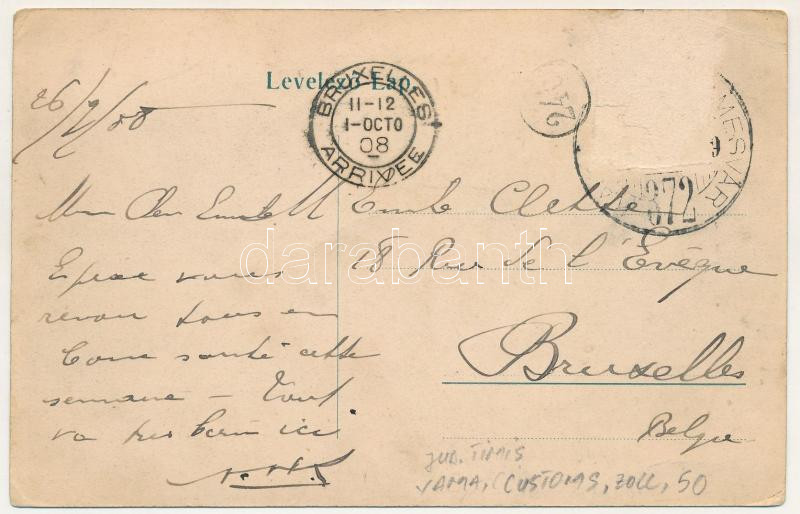 Levelező-Lap
BRUXELLES
11-12
1-OCTO
08
ARRIVÉE
MESVÁR
372
26/9/08
Mon Cher
Espère vous
revoir tous en
bonne santé cette
semaine — Tout
va très bien ici
Emile
18 Rue de l'Evêque
Bruxelles
Belgie
darabanth
JUD. TIMIS
VAMA, CUSTOMS, ZOLL, 50